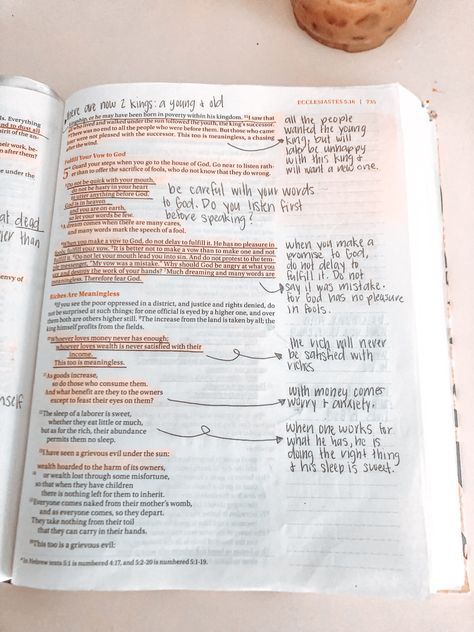 ECCLESIASTES 5:16 | 735
there are now 2 kings: a young & old
kingship, or he may have been born in poverty within his kingdom. 15 I saw that
all who lived and walked under the sun followed the youth, the king's successor.
16 There was no end to all the people who were before them. But those who came
later were not pleased with the successor. This too is meaningless, a chasing
after the wind.
all the people
wanted the young
king, but will
later be unhappy
with this king &
will want a new one.
Fulfill Your Vow to God
5 Guard your steps when you go to the house of God. Go near to listen rath-
er than to offer the sacrifice of fools, who do not know that they do wrong.
2 Do not be quick with your mouth,
do not be hasty in your heart
to utter anything before God.
God is in heaven
and you are on earth,
so let your words be few.
3 A dream comes when there are many cares,
and many words mark the speech of a fool.
be careful with your words
to God. Do you listen first
before speaking?
4 When you make a vow to God, do not delay to fulfill it. He has no pleasure in
fools; fulfill your vow. 5 It is better not to make a vow than to make one and not
fulfill it. 6 Do not let your mouth lead you into sin. And do not protest to the tem-
ple messenger, "My vow was a mistake." Why should God be angry at what you
say and destroy the work of your hands? 7 Much dreaming and many words are
meaningless. Therefore fear God.
when you make a
promise to God,
do not delay to
fulfill it. Do not
say it was mistake.
for God has no pleasure
in fools.
Riches Are Meaningless
8 If you see the poor oppressed in a district, and justice and rights denied, do
not be surprised at such things; for one official is eyed by a higher one, and over
them both are others higher still. 9 The increase from the land is taken by all; the
king himself profits from the fields.
10 Whoever loves money never has enough;
whoever loves wealth is never satisfied with their
income.
This too is meaningless.
the rich will never
be satisfied with
riches
11 As goods increase,
so do those who consume them.
And what benefit are they to the owners
except to feast their eyes on them?
with money comes
worry & anxiety.
12 The sleep of a laborer is sweet,
whether they eat little or much,
but as for the rich, their abundance
permits them no sleep.
when one works for
what he has, he is
doing the right thing
& his sleep is sweet.
13 I have seen a grievous evil under the sun:
wealth hoarded to the harm of its owners,
14 or wealth lost through some misfortune,
so that when they have children
there is nothing left for them to inherit.
15 Everyone comes naked from their mother's womb,
and as everyone comes, so they depart.
They take nothing from their toil
that they can carry in their hands.
16 This too is a grievous evil:
a In Hebrew texts 5:1 is numbered 4:17, and 5:2-20 is numbered 5:1-19.